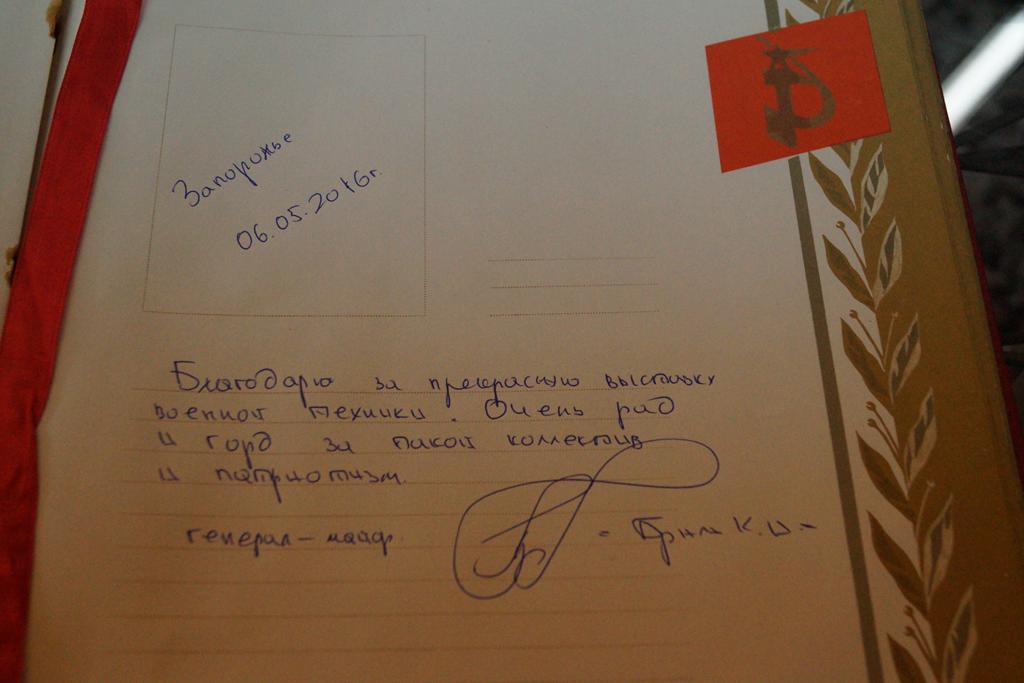 Запорожье
06.05.2016г.
Благодарю за прекрасную выставку
военной техники. Очень рад
и горд за такой коллектив
и патриотизм.
генерал-майор - Бриль К.И-